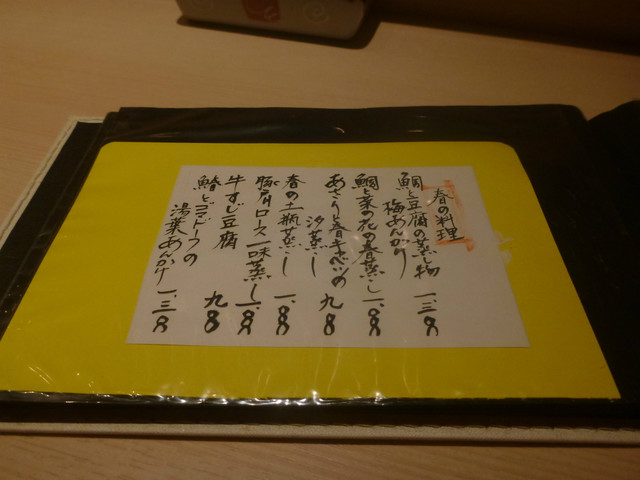 春の料理
鯛と豆腐の蒸し物
梅あんかけ
一、三〇〇
鯛と菜の花の春蒸し
一、〇〇〇
あさりと春キャベツの
汐蒸し
九〇〇
春の土瓶蒸し
一、〇〇〇
豚肩ロース一味蒸し
一、〇〇〇
牛すじ豆腐
九〇〇
鰆とゴマドーフの
湯葉あんかけ
一、三〇〇